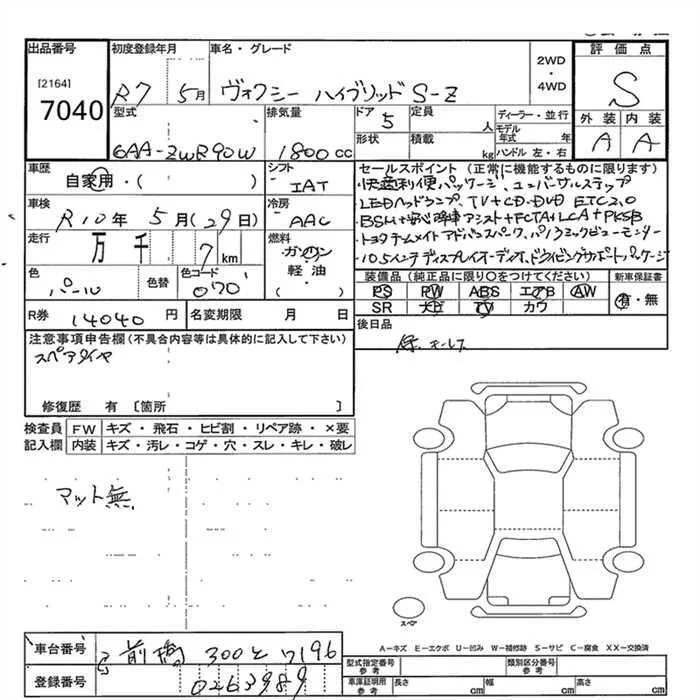 出品番号
[2164]
7040
初度登録年月
R7 5月
車名・グレード
ヴォクシー ハイブリッド S-Z
2WD
・
4WD
評価点
S
外装 内装
A A
型式
6AA-ZWR90W
排気量
1800cc
ドア
5
定員
人
ディーラー・並行
形状
積載
kg
モデル年式 年
ハンドル 左・右
車歴
自家用・( )
シフト
IAT
車検
R10年 5月(29日)
冷房
AAC
走行
万 千 7km
燃料
ガソリン
軽油
( )
色
パール
色替
色コード
070
セールスポイント (正常に機能するものに限ります)
・快適利便パッケージ、ユニバーサルステップ
・LEDヘッドランプ、TV+CD・DVD ETC2.0
・BSM+安心降車アシスト+FCTA+LCA+PKSB
・トヨタチームメイトアドバンスパーク、パノラミックビューモニター
・10.5インチディスプレイオーディオ、ドライビングサポートパッケージ
装備品 (純正品に限り○をつけてください)
PS PW ABS エアB AW
SR 本革 TV カワ
新車保証書
有・無
R券
14040円
名変期限 月 日
後日品
保、キーレス
注意事項申告欄(不具合内容等は具体的に記入して下さい)
スペアタイヤ
修復歴 有 [箇所 ]
検査員記入欄
FW キズ・飛石・ヒビ割・リペア跡・×要
内装 キズ・汚レ・コゲ・穴・スレ・キレ・破レ
マット無
スペア
A-キズ E-エクボ U-凹み W-補修跡 S-サビ C-腐食 XX-交換済
車台番号
前橋 300 と 7196
登録番号
0263989
型式指定番号 参考
類別区分番号 参考
車庫証明用 参考
長さ cm 幅 cm 高さ cm